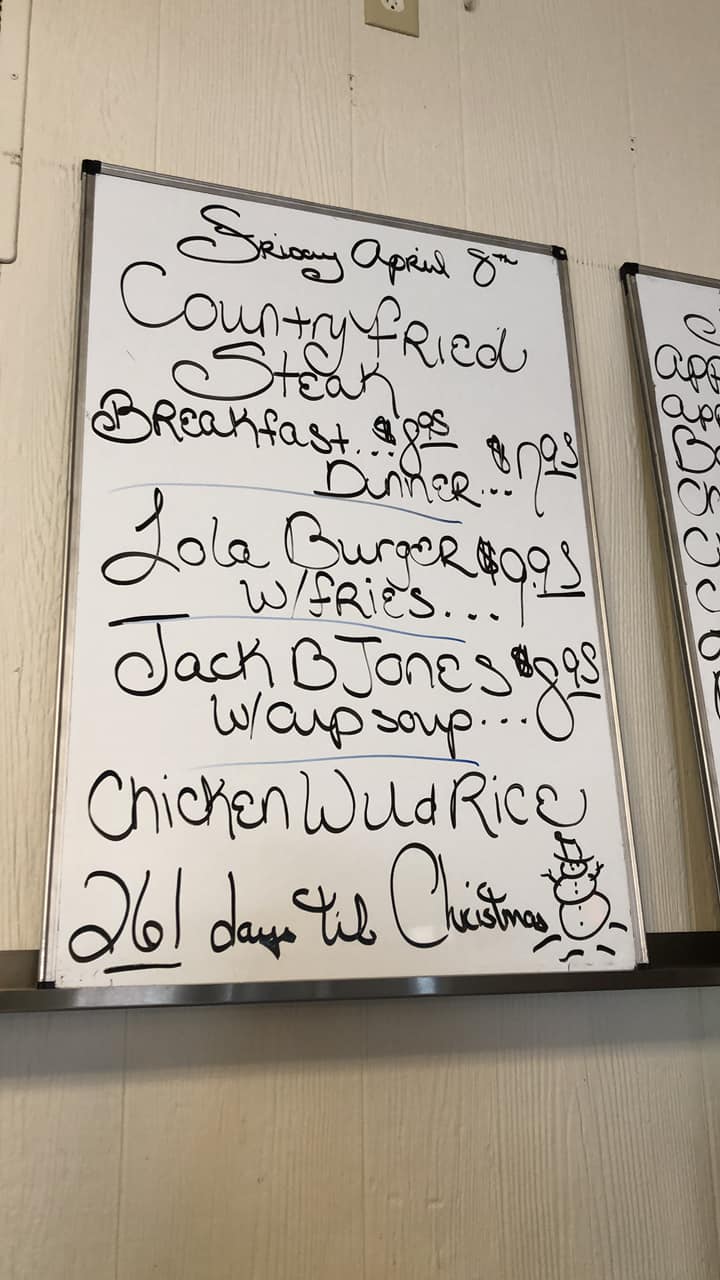 Friday April 8th
Country fried
Steak
Breakfast... $8.95
Dinner...
Lola Burger $9.95
w/fries...
Jack B Jones $8.95
w/cup soup...
Chicken Wild Rice
261 days 'til Christmas
App
app
B
Ch
C
C